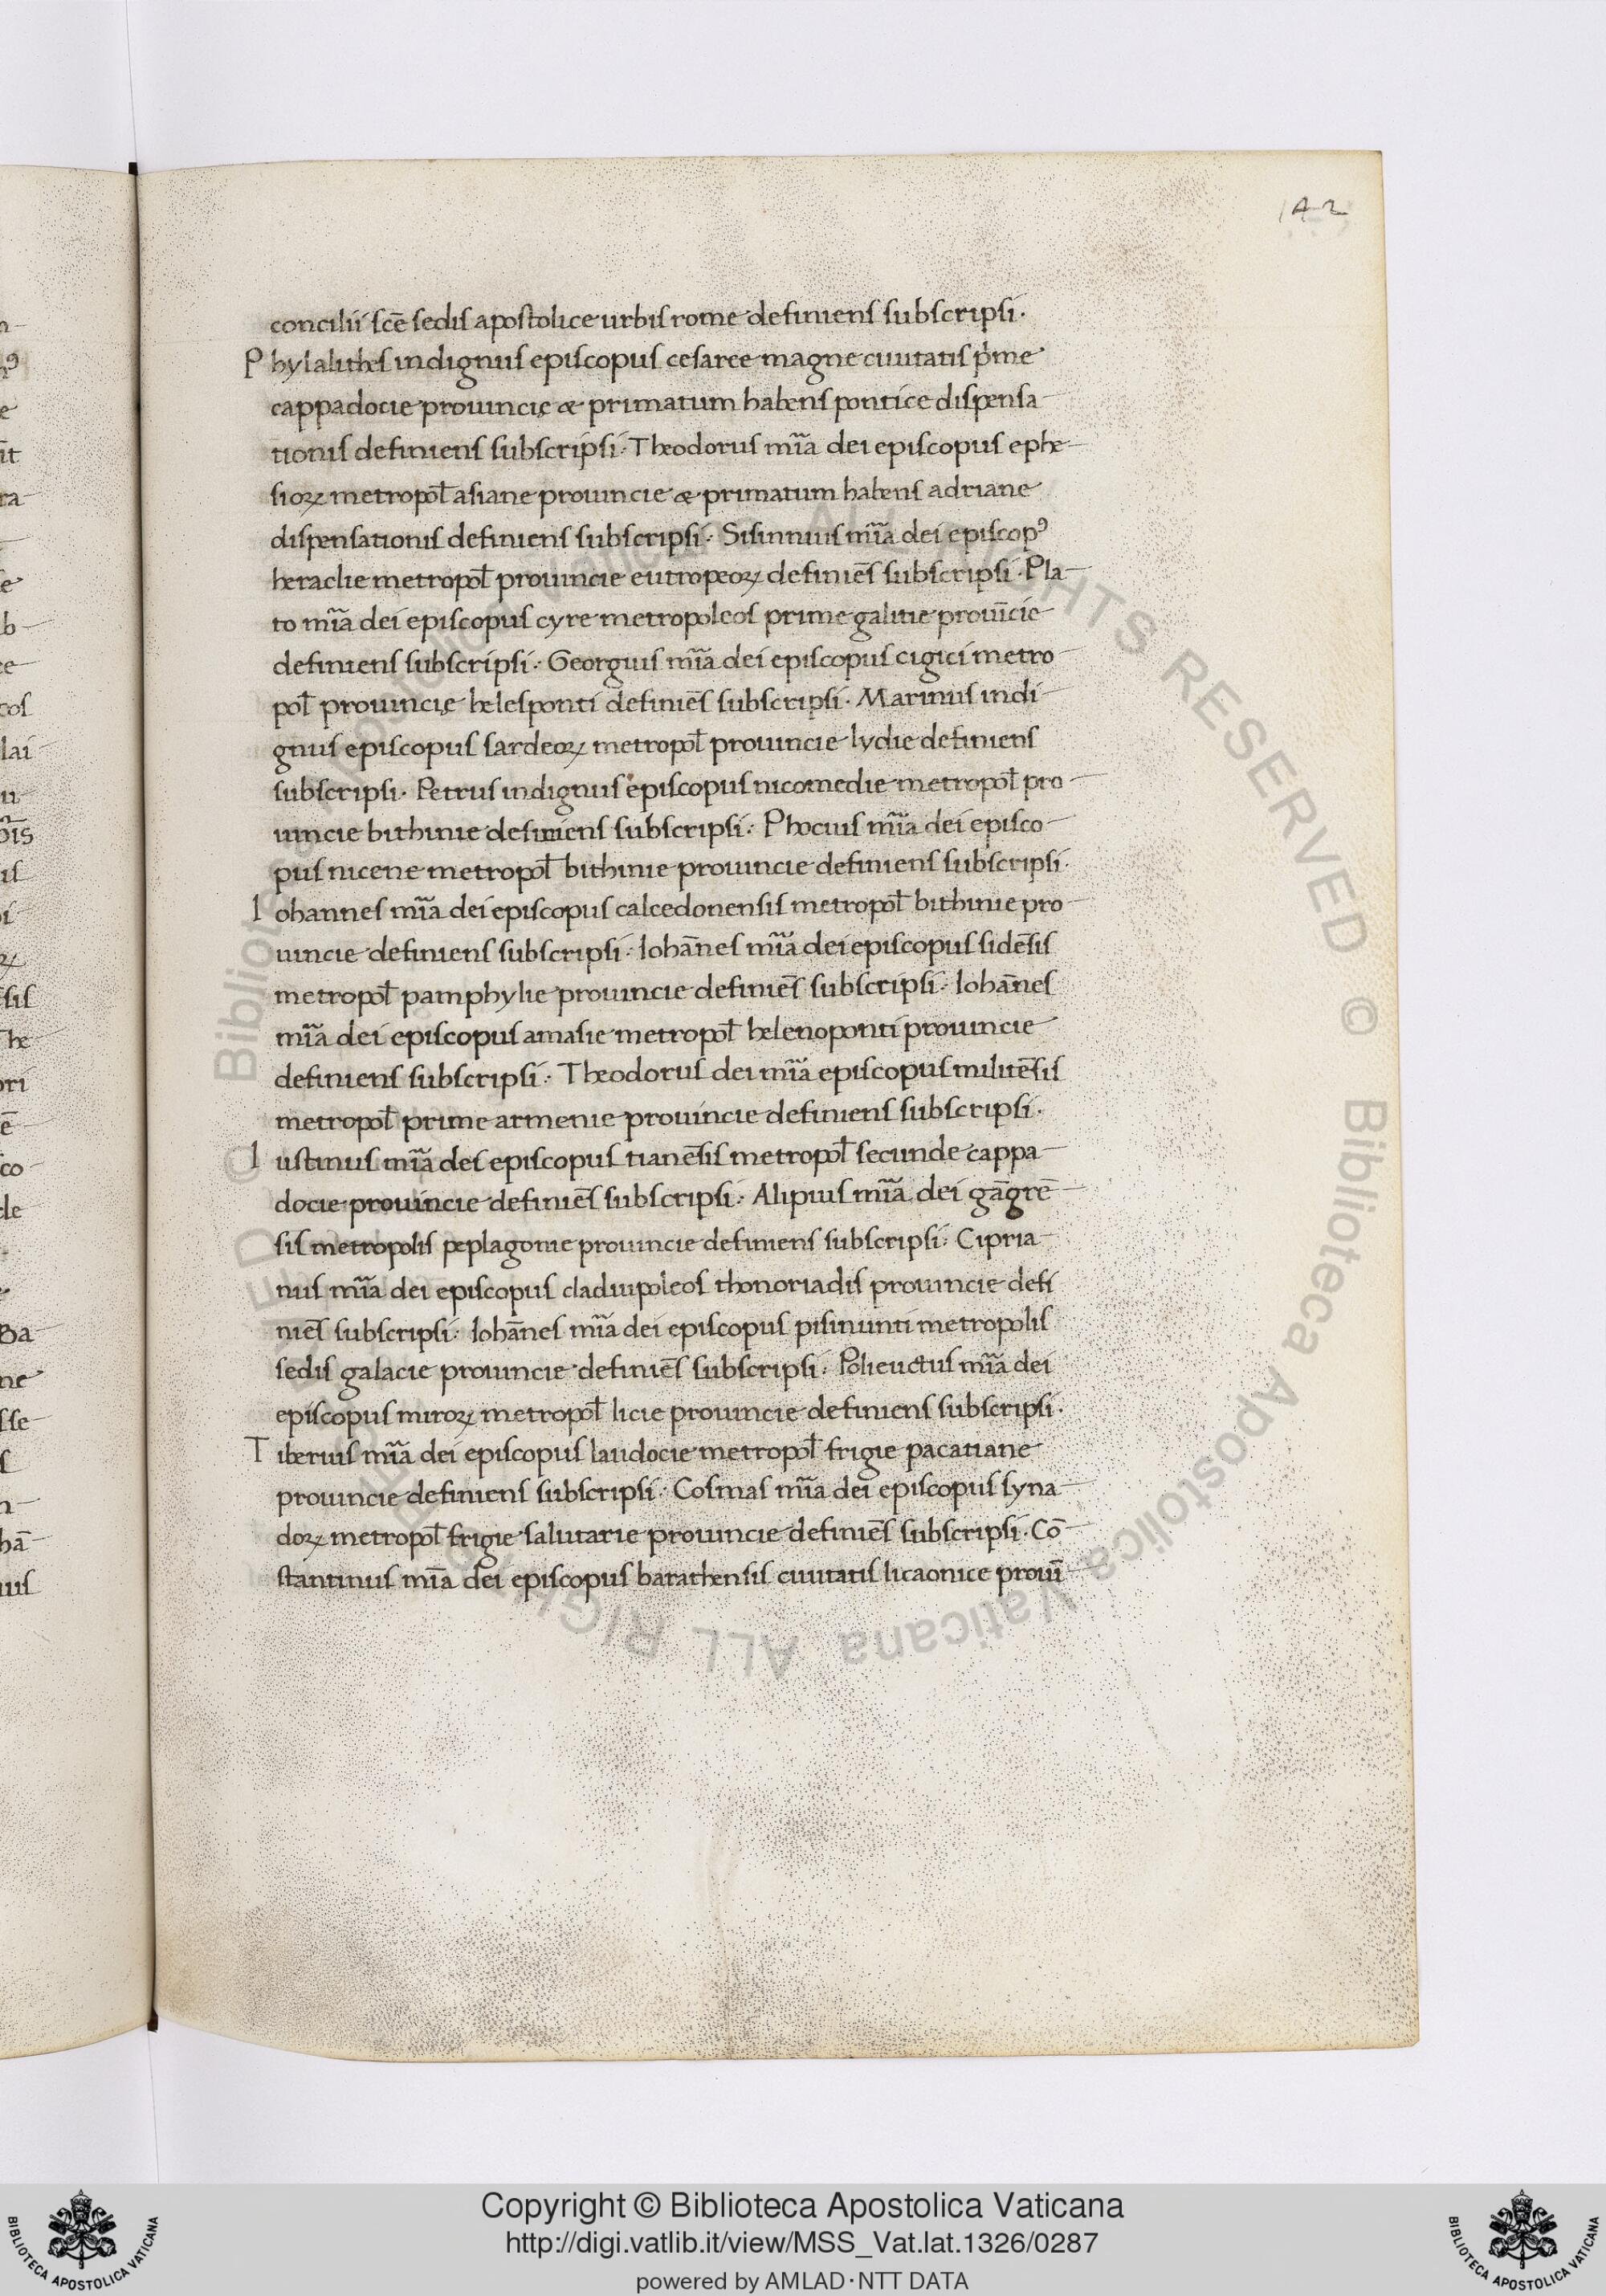 142
concilii scē sedis apostolice urbis rome definiens subscripsi.
Phylalithes indignus episcopus cesaree magne ciuitatis p̍me
cappadocie prouincię & primatum habens pontice dispensa
tionis definiens subscripsi. Theodorus mīa dei episcopus ephe
sioꝝ metropoł asiane prouincie & primatum habens adriane
dispensationis definiens subscripsi. Sisinnius mīa dei episcopꝰ
heraclie metropoł prouincie eutropeoꝝ definiēs subscripsi. Pla
to mīa dei episcopus cyre metropoleos prime galitie prouīcie
definiens subscripsi. Georgius mīa dei episcopus cigici metro
poł prouincię helesponti definiēs subscripsi. Marinus indi
gnus episcopus sardeoꝝ metropoł prouincie lydie definiens
subscripsi. Petrus indignus episcopus nicomedie metropoł pro
uincie bithinie definiens subscripsi. Phocius mīa dei episco
pus nicene metropoł bithinie prouincie definiens subscripsi.
Iohannes mīa dei episcopus calcedonensis metropoł bithinie pro
uincie definiens subscripsi. Iohānes mīa dei episcopus sidēsis
metropoł pamphylie prouincie definiēs subscripsi. Iohānes
mīa dei episcopus amasie metropoł helenoponti prouincie
definiens subscripsi. Theodorus dei mīa episcopus militēsis
metropoł prime armenie prouincie definiens subscripsi.
Iustinus mīa dei episcopus tianēsis metropoł secunde cappa
docie prouincie definiēs subscripsi. Alipius mīa dei gāgrē
sis metropolis peplagonie prouincie definiens subscripsi. Cipria
nus mīa dei episcopus cladiupoleos thonoriadis prouincie defi
niēs subscripsi. Iohānes mīa dei episcopus pisinunti metropolis
sedis galacie prouincie definiēs subscripsi. Polieuctus mīa dei
episcopus miroꝝ metropoł licie prouincie definiens subscripsi.
Tiberius mīa dei episcopus laudocie metropoł frigie pacatiane
prouincie definiens subscripsi. Cosmas mīa dei episcopus syna
doꝝ metropoł frigie salutarie prouincie definiēs subscripsi. Cō
stantinus mīa dei episcopus barathensis ciuitatis licaonice prouī
Copyright © Biblioteca Apostolica Vaticana
http://digi.vatlib.it/view/MSS_Vat.lat.1326/0287
powered by AMLAD·NTT DATA
BIBLIOTECA APOSTOLICA VATICANA
BIBLIOTECA APOSTOLICA VATICANA
© Biblioteca Apostolica Vaticana ALL RIGHTS RESERVED © Biblioteca Apostolica Vaticana ALL RIGHTS RESERVED